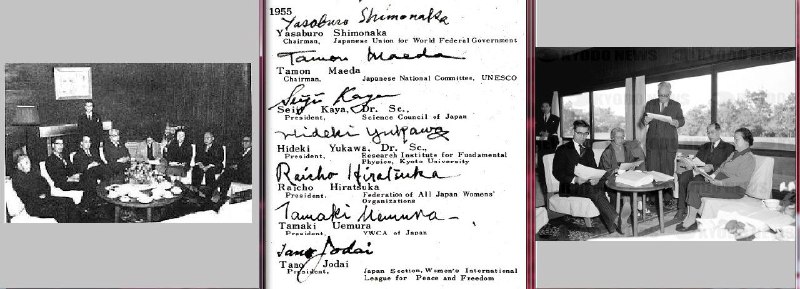 1955
Yasaburo Shimonaka
Yasaburo Shimonaka
Chairman, Japanese Union for World Federal Government
Tamon Maeda
Tamon Maeda
Chairman, Japanese National Committee, UNESCO
Seiji Kaya
Seiji Kaya, Dr. Sc.,
President, Science Council of Japan
Hideki Yukawa
Hideki Yukawa, Dr. Sc.,
President, Research Institute for Fundamental
Physics, Kyoto University
Raicho Hiratsuka
Raicho Hiratsuka
President, Federation of All Japan Womens'
Organizations
Tamaki Uemura
Tamaki Uemura
President, YWCA of Japan
Tano Jodai
Tano Jodai
President, Japan Section, Women's International
League for Peace and Freedom
KYODO NEWS